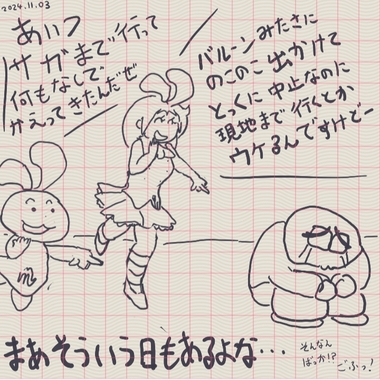 2024.11.03
あいつ
サガまで行って
何もなしで
かえってきたんだぜ
バルーンみたさに
のこのこ出かけて
とっくに中止なのに
現地まで行くとか
ウケるんですけどー
まあそういう日もあるよな…
そんなん
ばっか!?
ごふっ!